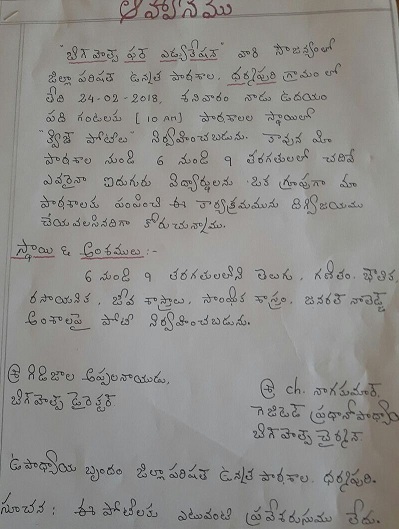 ఆహ్వానము
"బిగ్ హెల్ప్ ఫర్ ఎడ్యుకేషన్" వారి సౌజన్యంలో
జిల్లా పరిషత్ ఉన్నత పాఠశాల, ధర్మపురి గ్రామం లో
తేది 24-02-2018, శనివారం నాడు ఉదయం
పది గంటలకు (10 AM) పాఠశాలల స్థాయిలో
"క్విజ్ పోటీలు" నిర్వహించబడును. కావున మీ
పాఠశాల నుండి 6 నుండి 9 తరగతులలో చదివే
ఎవరైనా ఐదుగురు విద్యార్థులను ఒక గ్రూపుగా మా
పాఠశాలకు పంపించి ఈ కార్యక్రమమును దిగ్విజయము
చేయవలసినదిగా కోరుచున్నాము.
స్థాయి & అంశములు :-
6 నుండి 9 తరగతులలోని తెలుగు, గణితం, భౌతిక,
రసాయనిక, జీవ శాస్త్రాలు, సాంఘిక శాస్త్రం, జనరల్ నాలెడ్జ్
అంశాలపై పోటీ నిర్వహించబడును.
శ్రీ గిడిజాల అప్పలనాయుడు,
బిగ్ హెల్ప్ డైరెక్టర్
శ్రీ ch. నాగకుమార్,
గెజిటెడ్ ప్రధానోపాధ్యా
బిగ్ హెల్ప్ చైర్మన్
ఉపాధ్యాయ బృందం జిల్లా పరిషత్ ఉన్నత పాఠశాల, ధర్మపురి.
సూచన : ఈ పోటీలకు ఎటువంటి ప్రవేశరుసుము లేదు.